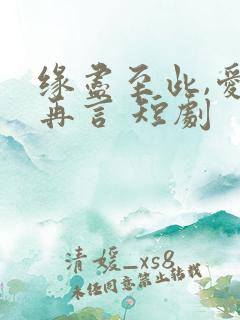 缘尽至此,爱
再言 短劇
清媛_xs8
未经同意禁止转载